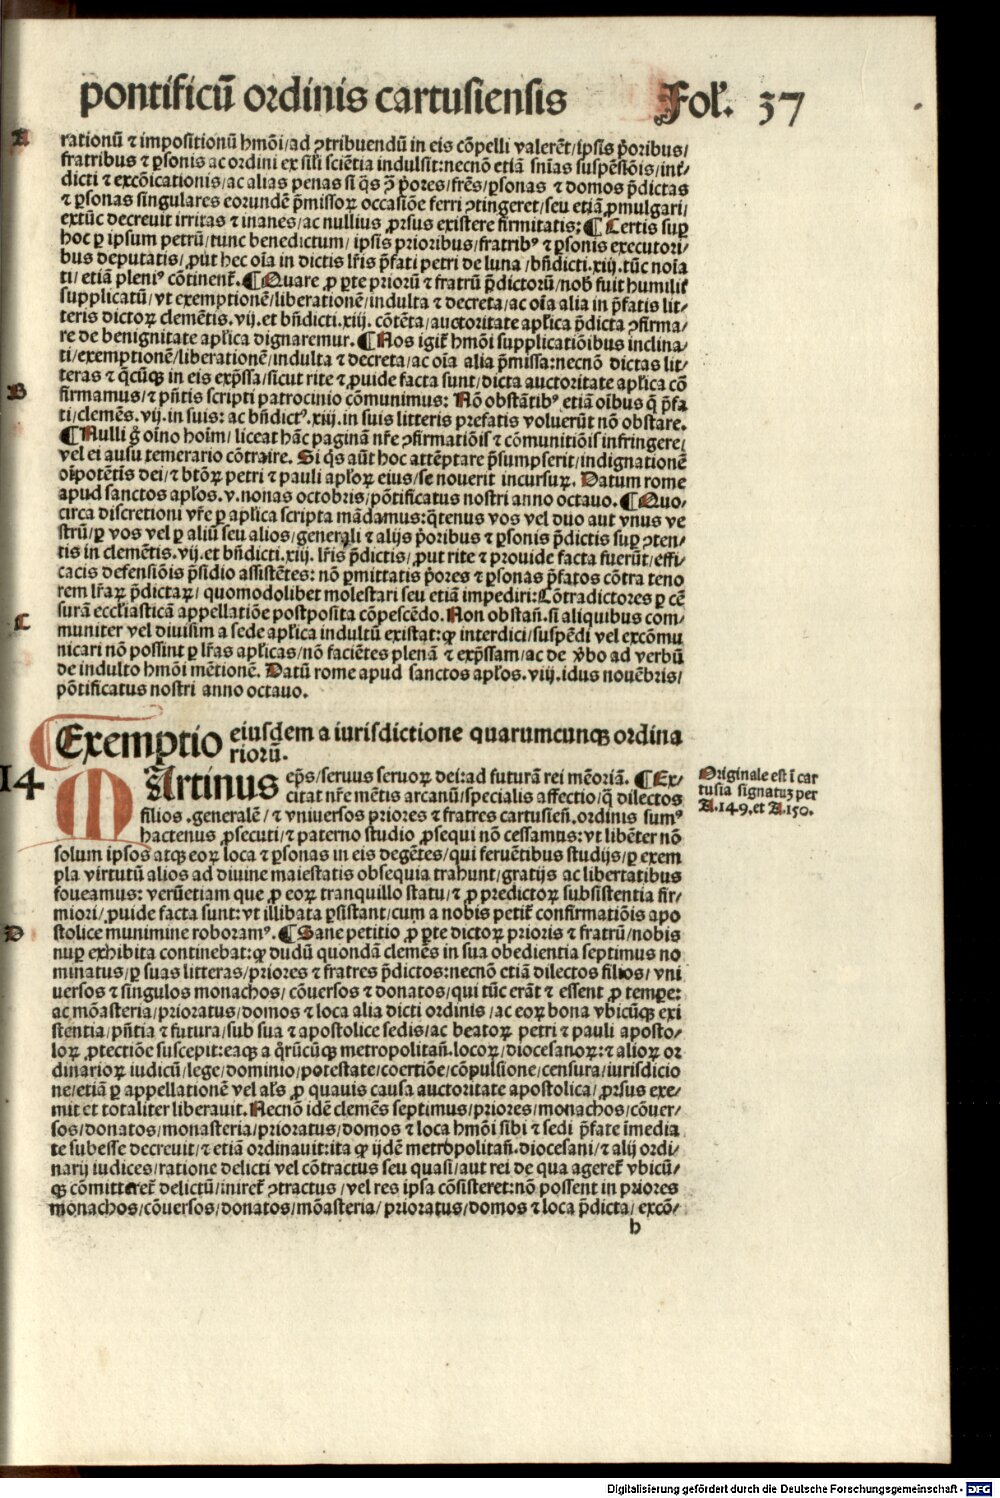 pontificū ordinis cartusiensis Fol'. 37
A
rationū ⁊ impositionū hmōi/ad ꝯtribuendū in eis cōpelli valerēt/ipsis p̄oribus/
fratribus ⁊ ꝑsonis ac ordini ex sil'i sciētia indulsit:necnō etiā snīas suspēsiōis/int̄/
dicti ⁊ excōicationis/ac alias penas si q̄s ī p̄ores/frēs/ꝑsonas ⁊ domos p̄dictas
⁊ ꝑsonas singulares eorundē p̄missoꝝ occasiōe ferri ꝯtingeret/seu etiā ꝓmulgari/
extūc decreuit irritas ⁊ inanes/ac nullius ꝓrsus existere firmitatis: ¶ Certis suꝑ
hoc ꝑ ipsum petrū/tunc benedictum/ ipsis prioribus/fratribꝰ ⁊ ꝑsonis executori/
bus deputatis/ꝓut hec oīa in dictis lr̄is p̄fati petri de luna /bn̄dicti.xiij.tūc noīa
ti/ etiā pleniꝰ cōtinent̄. ¶ Quare ꝓ ꝑte priorū ⁊ fratrū p̄dictorū/nob̄ fuit humilit̄
supplicatū/vt exemptionē/liberationē/indulta ⁊ decreta/ac oīa alia in p̄fatis lit/
teris dictoꝝ clemētis.vij.et bn̄dicti.xiij. cōtēta/auctoritate apl'ica p̄dicta ꝯfirma/
re de benignitate apl'ica dignaremur. ¶ Nos igit̄ hmōi supplicatiōibus inclina/
ti/exemptionē/liberationē/indulta ⁊ decreta/ac oīa alia p̄missa:necnō dictas lit/
teras ⁊ q̄cūqꝫ in eis exp̄ssa/sicut rite ⁊ ꝓuide facta sunt/dicta auctoritate apl'ica cō
B
firmamus/⁊ p̄ntis scripti patrocinio cōmunimus: Nō obstātibꝰ etiā oībus q̄ p̄fa
ti/clemēs.vij.in suis: ac bn̄dictꝰ.xiij.in suis litteris prefatis voluerūt nō obstare.
¶ Nulli g̊ oīno hoīm/liceat hāc paginā nr̄e ꝯfirmatiōis ⁊ cōmunitiōis infringere/
vel ei ausu temerario cōtraire. Si q̄s aūt hoc attēptare p̄sumpserit/indignationē
oīpotētis dei/⁊ btōꝝ petri ⁊ pauli apl'oꝝ eius/se nouerit incursuꝝ. Datum rome
apud sanctos apl'os.v.nonas octobris/pōtificatus nostri anno octauo. ¶ Quo/
circa discretioni vr̄e ꝑ apl'ica scripta mādamus:q̄tenus vos vel duo aut vnus ve
strū/ꝑ vos vel ꝑ aliū seu alios/generali ⁊ alijs p̄oribus ⁊ ꝑsonis p̄dictis suꝑ ꝯten/
tis in clemētis.vij.et bn̄dicti.xiij. lr̄is p̄dictis/ꝓut rite ⁊ prouide facta fuerūt/effi/
cacis defensiōis p̄sidio assistētes: nō ꝑmittatis p̄ores ⁊ ꝑsonas p̄fatos cōtra teno
rem lr̄aꝝ p̄dictaꝝ/ quomodolibet molestari seu etiā impediri:Cōtradictores ꝑ cē
surā eccl'iasticā appellatiōe postposita cōpescēdo. Non obstan̄.si aliquibus com/
C
muniter vel diuisim a sede apl'ica indultū existat:ꝙ interdici/suspēdi vel excōmu
nicari nō possint ꝑ lr̄as apl'icas/nō faciētes plenā ⁊ exp̄ssam/ac de v̄bo ad verbū
de indulto hmōi mētionē. Datū rome apud sanctos apl'os.viij.idus nouēbris/
pōtificatus nostri anno octauo.
Exemptio eiusdem a iurisdictione quarumcunqꝫ ordina
riorū.
14
MArtinus ep̄s/seruus seruoꝝ dei:ad futurā rei mēoriā. ¶ Ex/
citat nr̄e mētis arcanū/specialis affectio/q̄ dilectos
filios .generalē/⁊ vniuersos priores ⁊ fratres cartusien̄.ordinis sumꝰ
hactenus ꝓsecuti/⁊ paterno studio ꝓsequi nō cessamus:vt libēter nō
solum ipsos atqꝫ eoꝝ loca ⁊ ꝑsonas in eis degētes/qui feruētibus studijs/ꝑ exem
pla virtutū alios ad diuine maiestatis obsequia trahunt/gratijs ac libertatibus
foueamus: verūetiam que ꝓ eoꝝ tranquillo statu/⁊ ꝓ predictoꝝ subsistentia fir/
miori/ꝓuide facta sunt:vt illibata ꝑsistant/cum a nobis petit̄ confirmatiōis apo
D
stolice munimine roboramꝰ. ¶ Sane petitio ꝓ ꝑte dictoꝝ prioris ⁊ fratrū/nobis
nuꝑ exhibita continebat:ꝙ dudū quondā clemēs in sua obedientia septimus no
minatus/ꝑ suas litteras/priores ⁊ fratres p̄dictos:necnō etiā dilectos filios/ vni
uersos ⁊ singulos monachos/ cōuersos ⁊ donatos/qui tūc erāt ⁊ essent ꝓ tempe:
ac mōasteria/prioratus/domos ⁊ loca alia dicti ordinis /ac eoꝝ bona vbicūqꝫ exi
stentia/pn̄tia ⁊ futura/sub sua ⁊ apostolice sedis/ac beatoꝝ petri ⁊ pauli aposto/
loꝝ ꝓtectiōe suscepit:eaqꝫ a q̄rūcūqꝫ metropolitan̄.locoꝝ/diocesanoꝝ:⁊ alioꝝ or
dinarioꝝ iudicū/lege/dominio/potestate/coertiōe/cōpulsione/censura/iurisdicio
ne/etiā ꝑ appellationē vel al's ꝓ quauis causa auctoritate apostolica/ꝓrsus exe/
mit et totaliter liberauit. Necnō idē clemēs septimus/priores/monachos/cōuer/
sos/donatos/monasteria/prioratus/domos ⁊ loca hmōi sibi ⁊ sedi p̄fate īmedia
te subesse decreuit/⁊ etiā ordinauit:ita ꝙ ijdē metropolitan̄.diocesani/⁊ alij ordi/
narij iudices/ratione delicti vel cōtractus seu quasi/aut rei de qua ageret̄ vbicū/
qꝫ cōmitteret̄ delictū/iniret̄ ꝯtractus /vel res ipsa cōsisteret:nō possent in priores
monachos/cōuersos/donatos/mōasteria/prioratus/domos ⁊ loca p̄dicta/ excō/
h
Originale est ī car
tusia signatuꝫ per
A.149.et A.150.
Digitalisierung gefördert durch die Deutsche Forschungsgemeinschaft - DFG